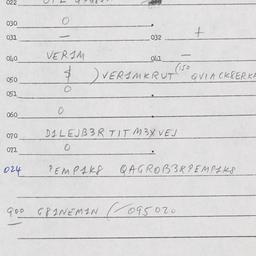 030 0
031 — 032 +
040 VER1M 041 —
050 $ ) VER1MKRUT (150 QVIACK8ERK
051 0
060 0
070 D1LEJB3R TIT M3XVEJ
072 0
024 ?EMP1K8 QAGROB3R?EMP1K8
900 G81NEM1N (/095020